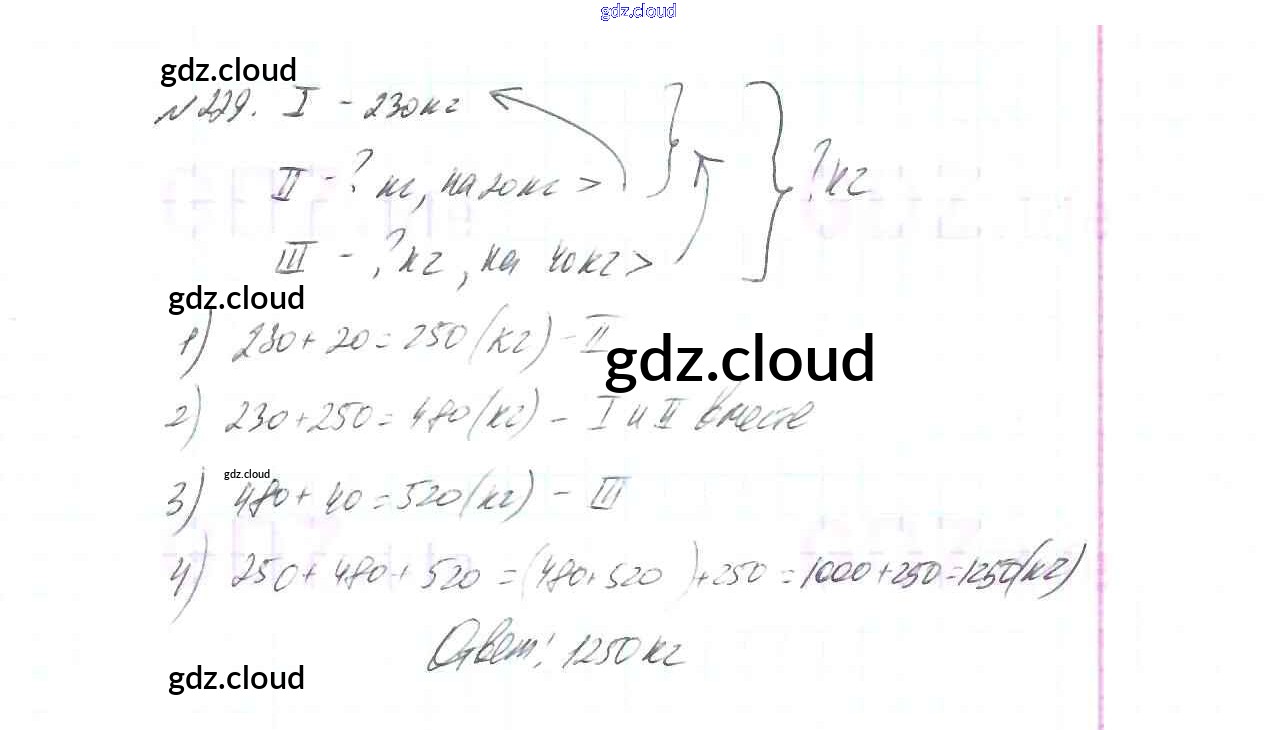 gdz.cloud
gdz.cloud
№229. I - 230 кг
II - ? кг, на 20 кг >
? кг
III - ? кг, на 40 кг >
gdz.cloud
1) 230 + 20 = 250 (кг) - II
gdz.cloud
2) 230 + 250 = 480 (кг) - I и II вместе
gdz.cloud
3) 480 + 40 = 520 (кг) - III
4) 250 + 480 + 520 = (480 + 520) + 250 = 1000 + 250 = 1250 (кг)
Ответ: 1250 кг
gdz.cloud